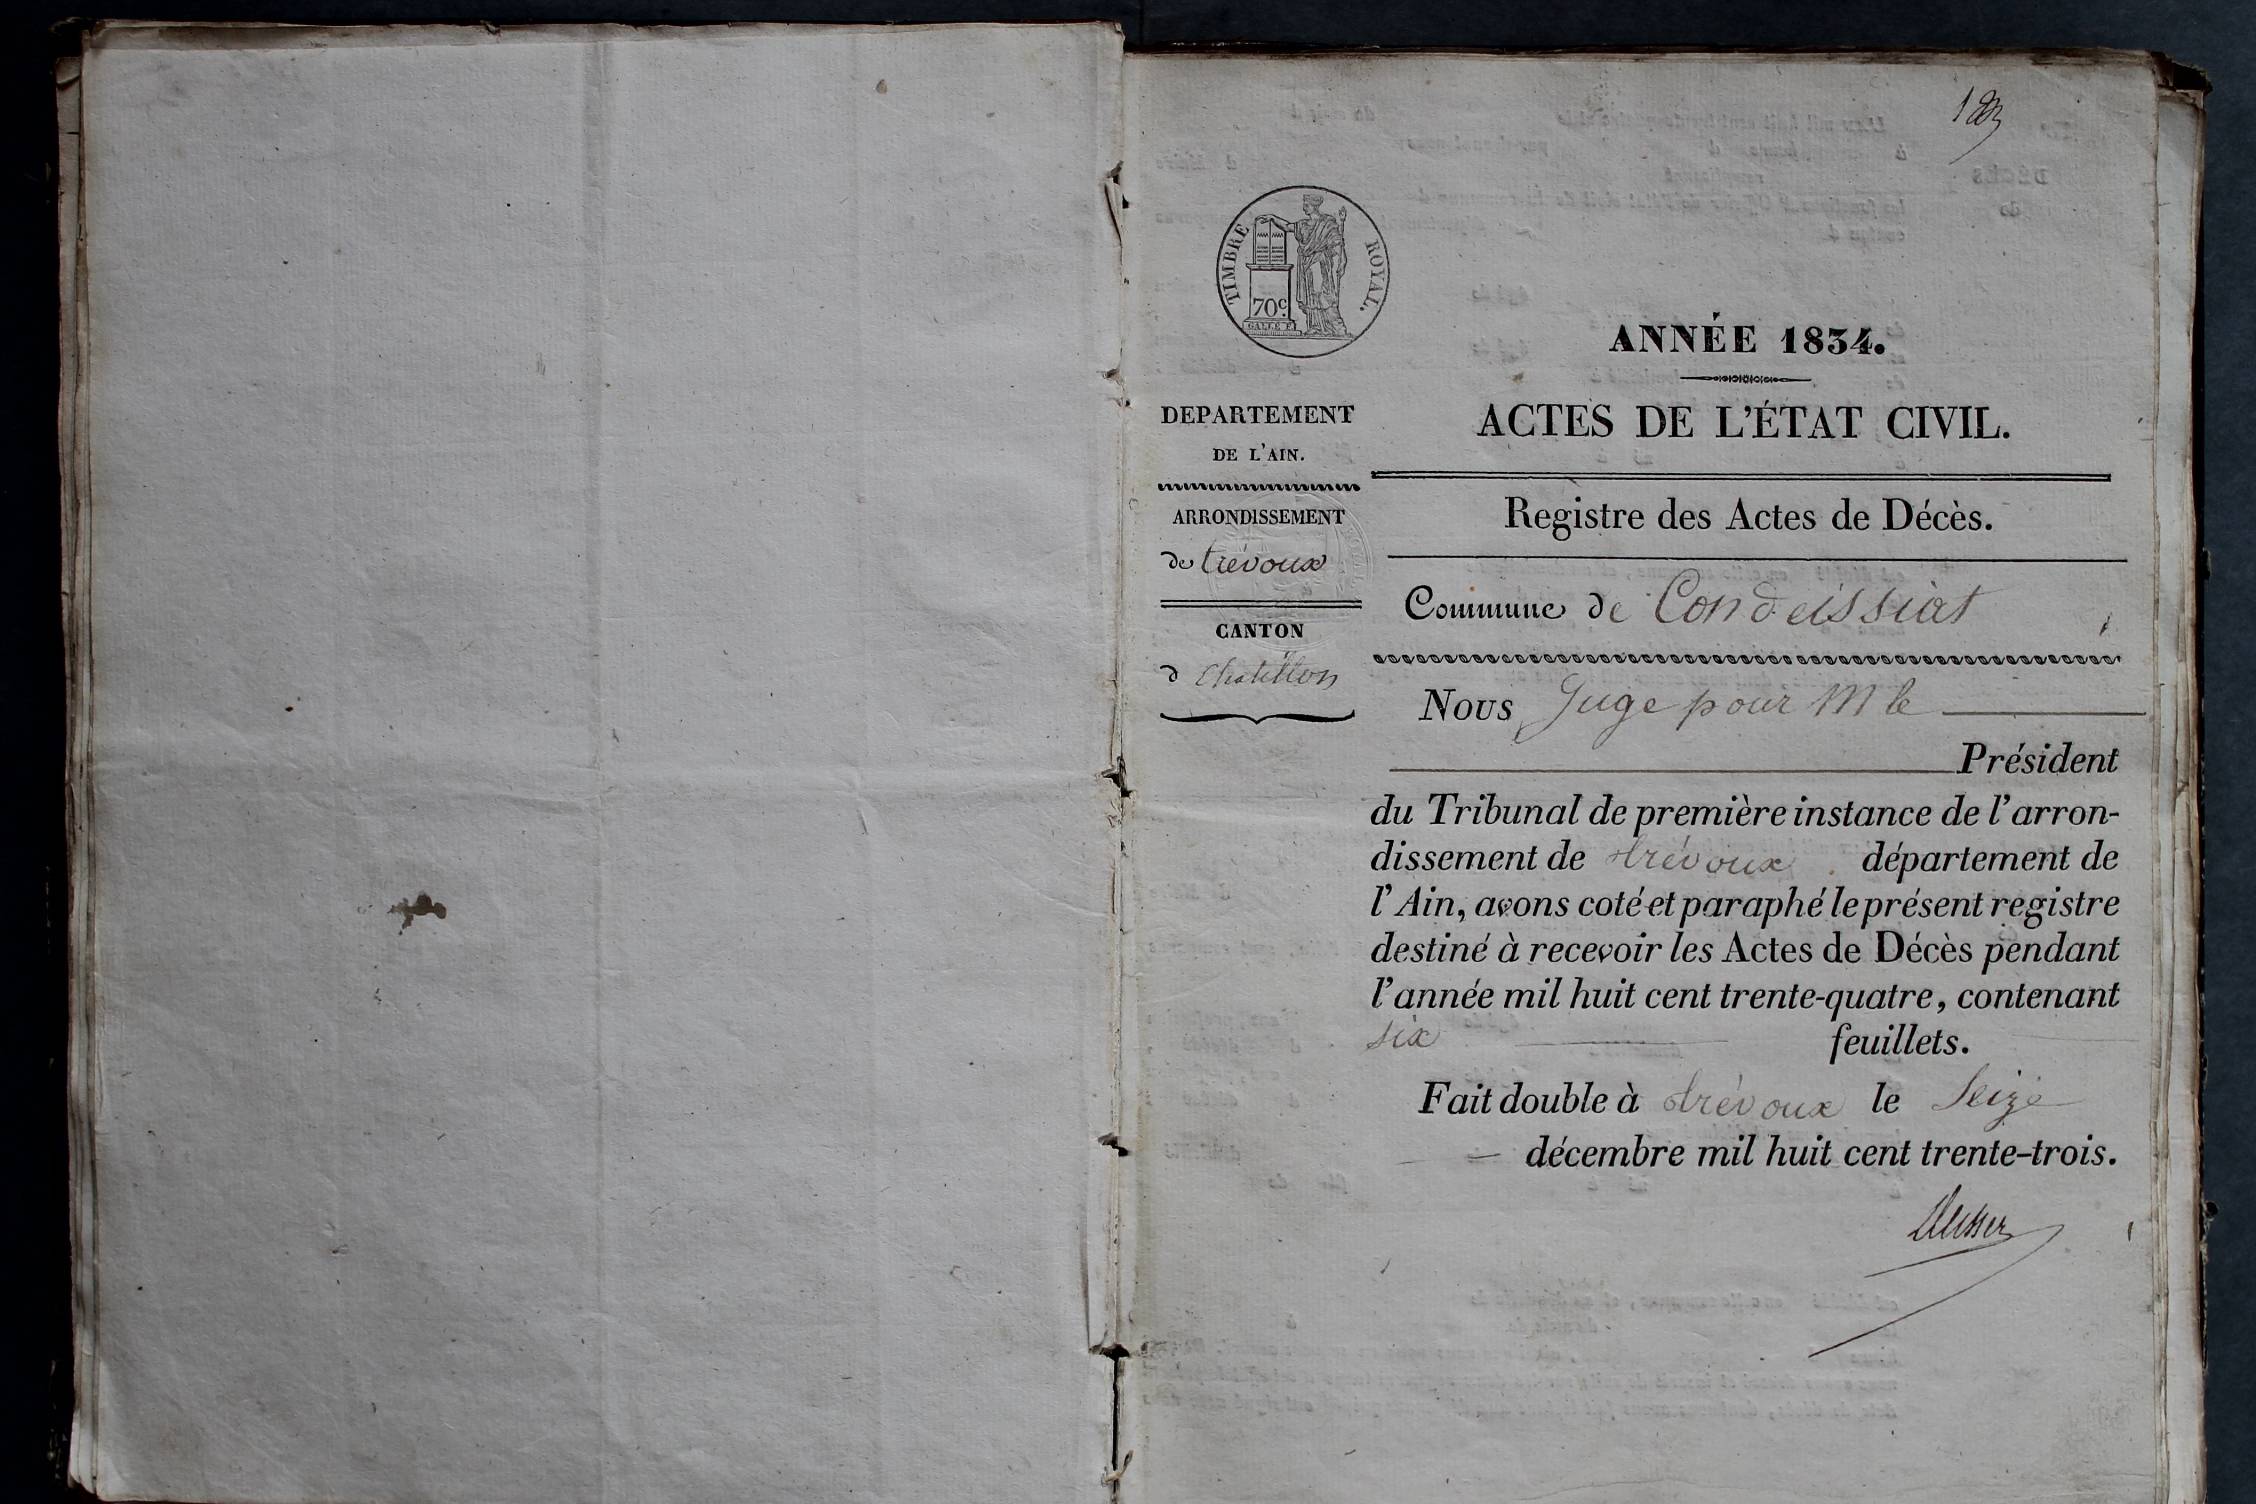 TIMBRE ROYAL.
70c.
ANNÉE 1834.
DEPARTEMENT
DE L'AIN.
ARRONDISSEMENT
de trévoux
CANTON
d Chatillon
ACTES DE L'ÉTAT CIVIL.
Registre des Actes de Décès.
Commune de Condeissiat
Nous Juge pour M le
Président
du Tribunal de première instance de l'arron-
dissement de trévoux département de
l'Ain, avons coté et paraphé le présent registre
destiné à recevoir les Actes de Décès pendant
l'année mil huit cent trente-quatre, contenant
six feuillets.
Fait double à trévoux le Seize
décembre mil huit cent trente-trois.